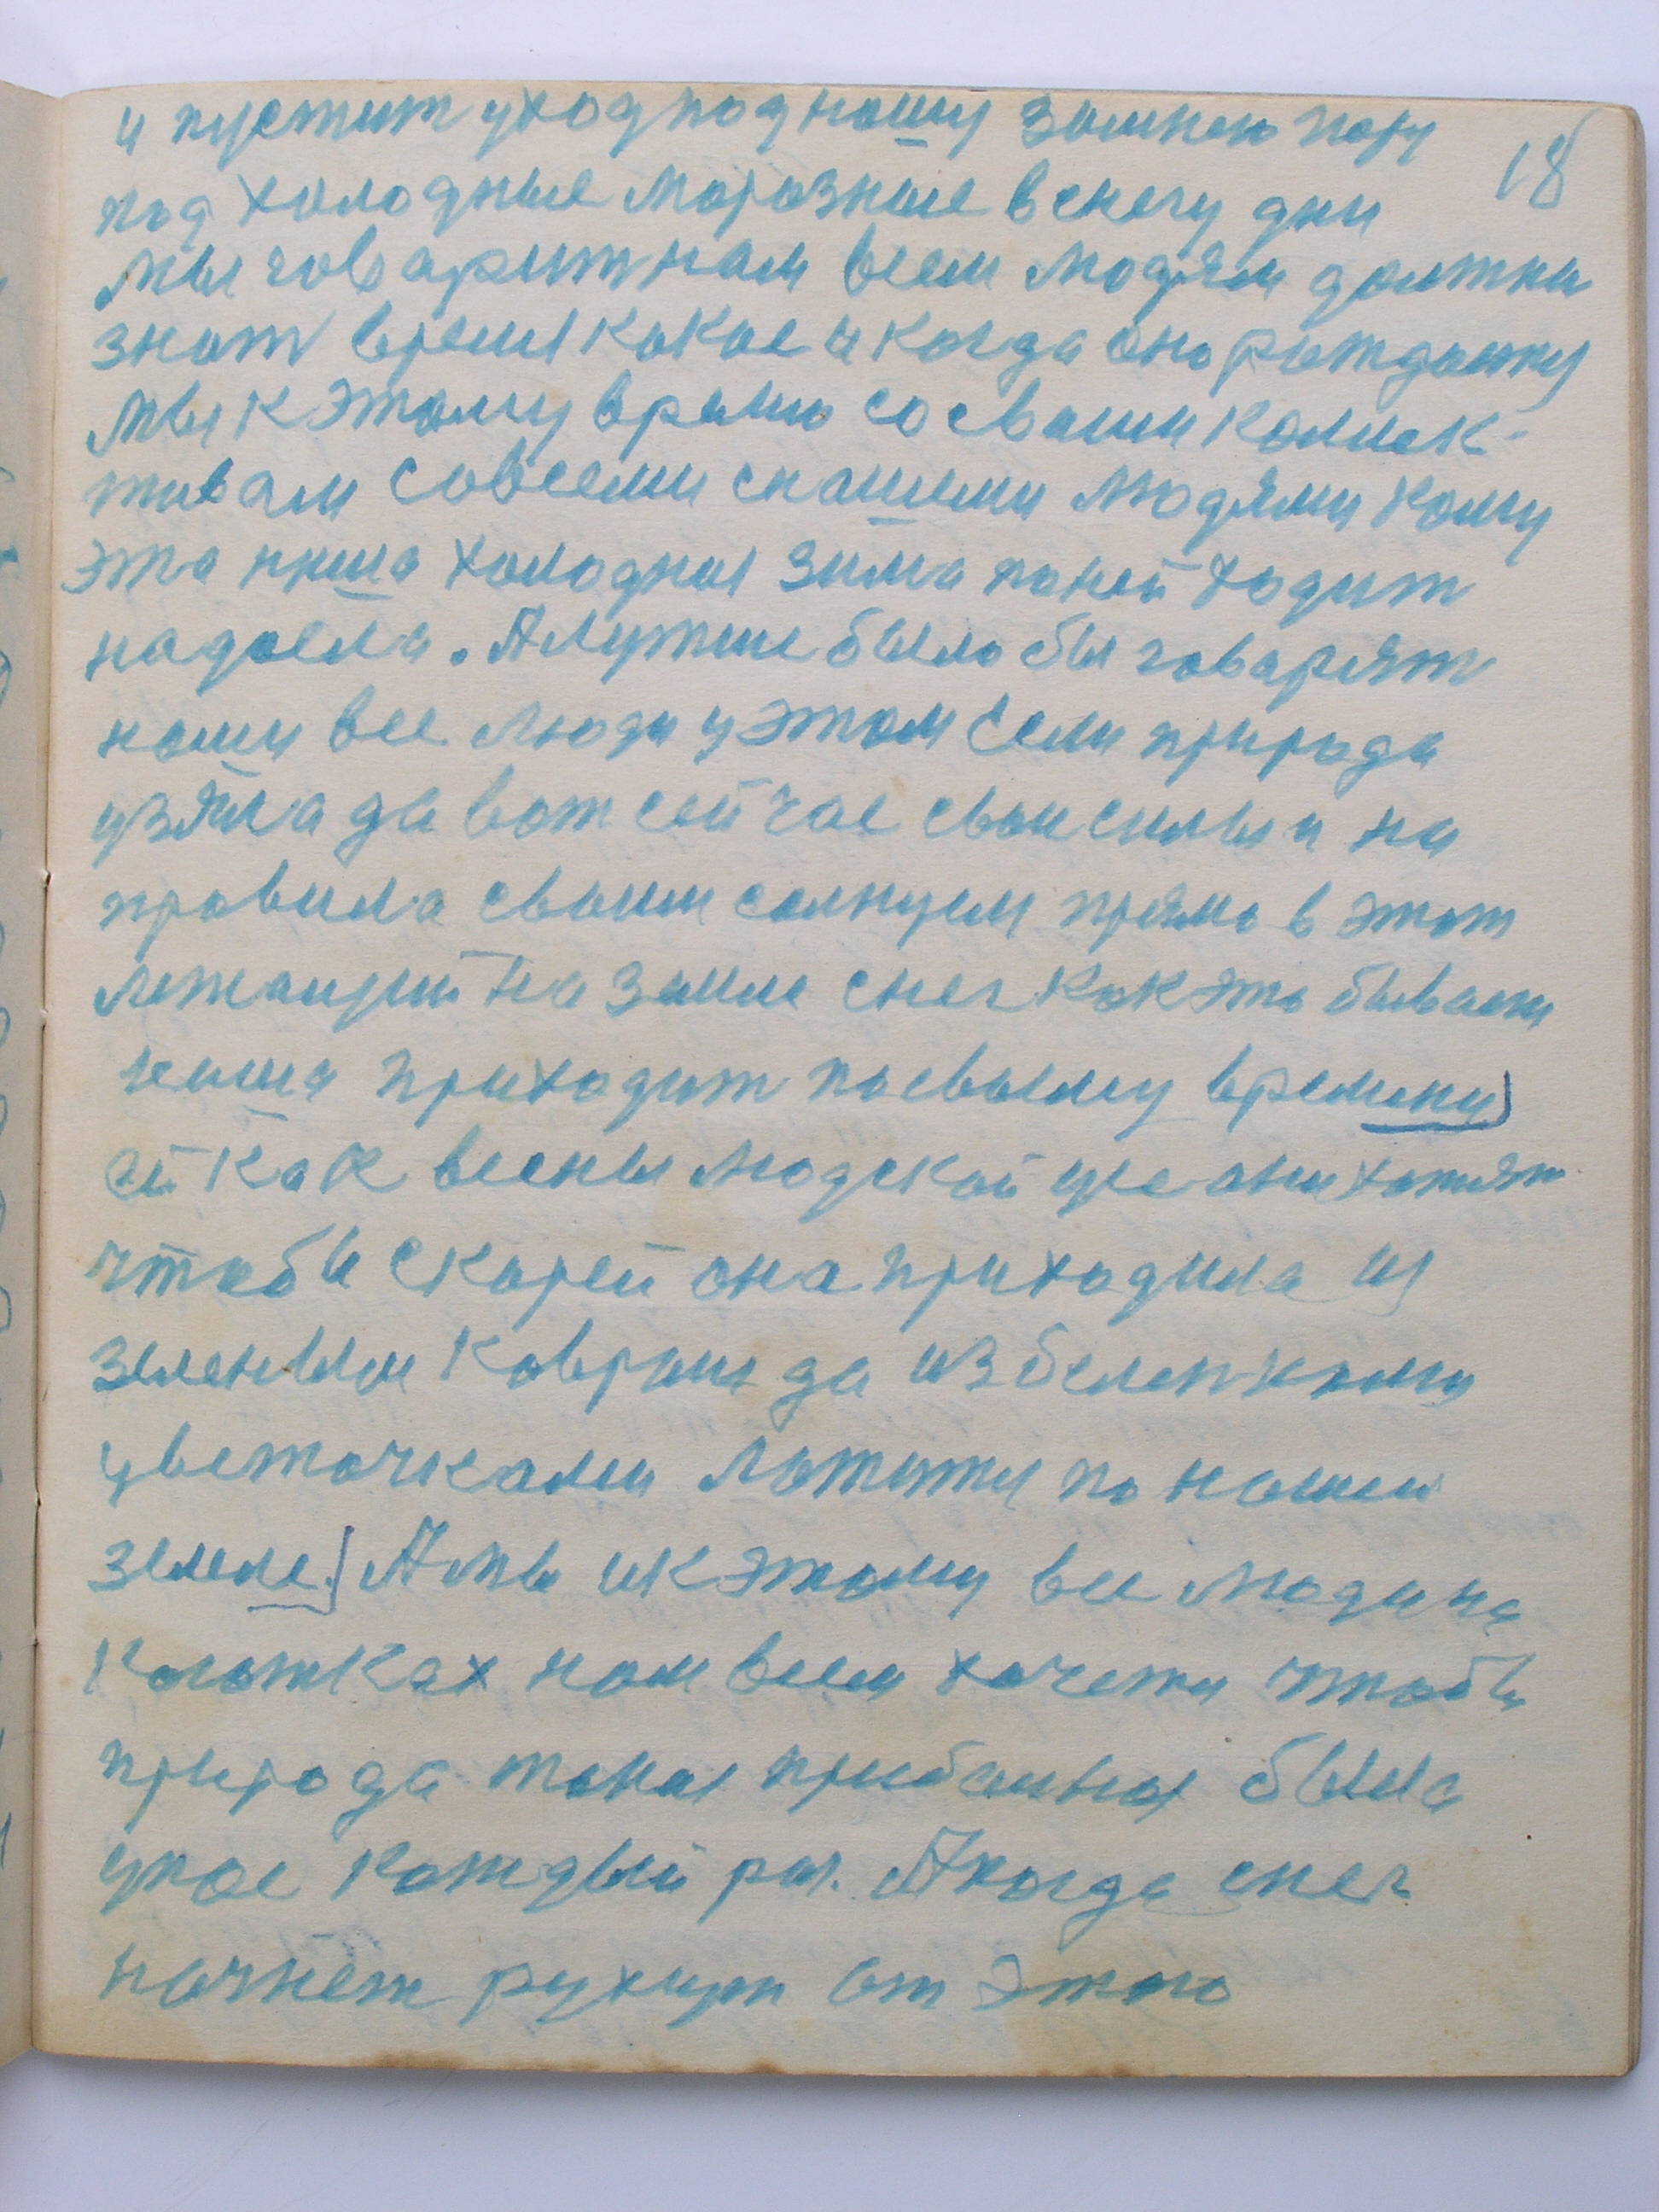 18
и пустит уход под нашу зимнею пору
под холодные морозные в снегу дни
мы говарит нам всем людям должны
знат время какое и когда оно рождаит
мы к этому время со своим коллек-
тивам совсеми снашими людями кому
эта наша холодная зима поней ходит
надоела. А лутше было бы говарят
наши все люди у этом если природа
узяла да вот сейчас свои силы и на
правила своим солнцем прямо в этот
лежащий на земле снег как это бывает
наша приходит посвоему времени
ей как весны людской уже они хотят
чтобы скорей она приходила из
зеленым ковром да из беленкими
цветочками ложится по нашей
земле. А мы и к этому все люди на
колотках нам всем хочется чтобы
природа такая прибавная была
у нас каждый раз. А когда снег
начнёт рухат от этого